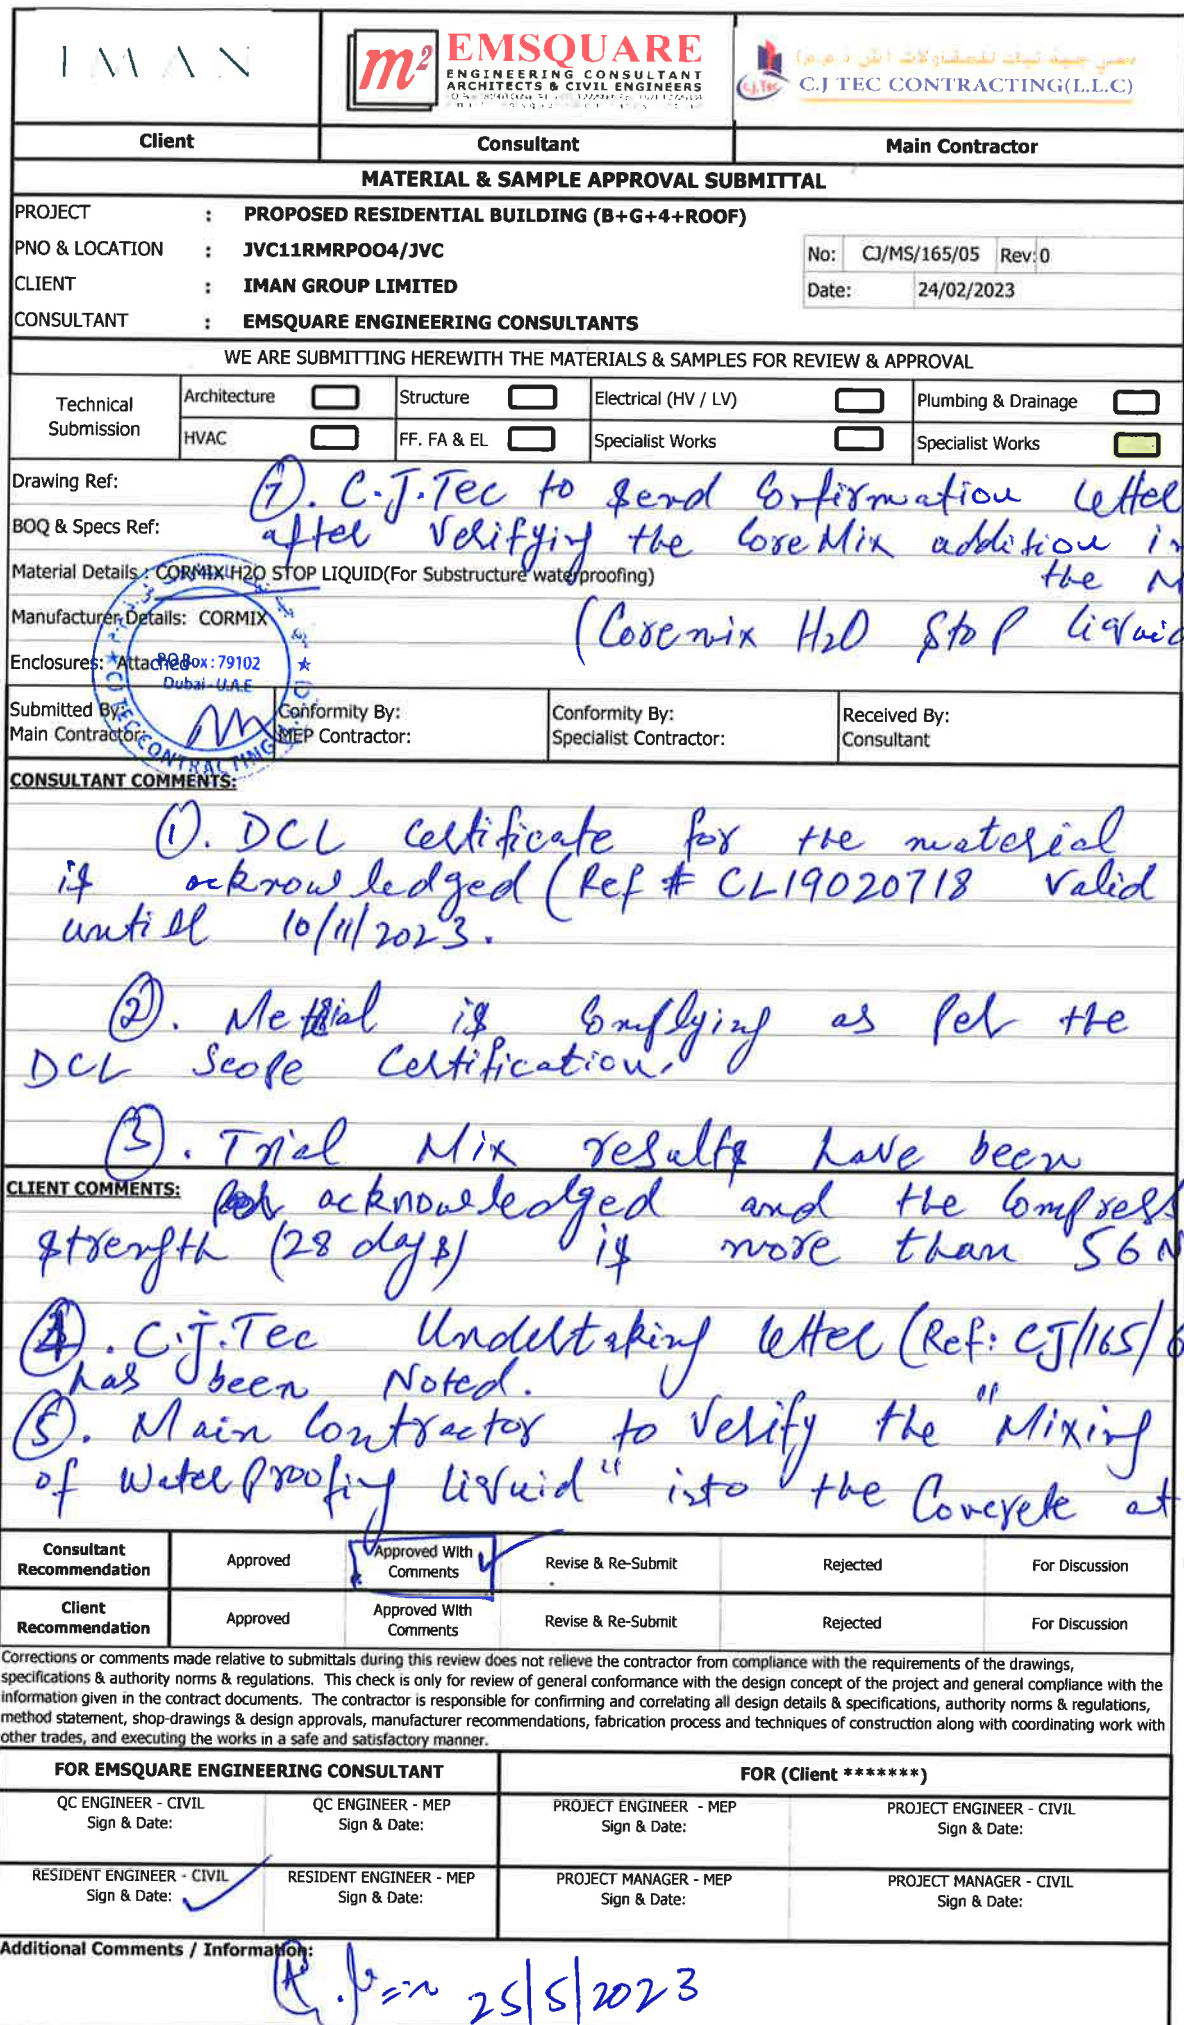 IMAN
m² EMSQUARE
ENGINEERING CONSULTANT
ARCHITECTS & CIVIL ENGINEERS
C.J.Tec
C.J TEC CONTRACTING(L.L.C)
Client Consultant Main Contractor
MATERIAL & SAMPLE APPROVAL SUBMITTAL
PROJECT : PROPOSED RESIDENTIAL BUILDING (B+G+4+ROOF)
PNO & LOCATION : JVC11RMRPOO4/JVC
No: CJ/MS/165/05 Rev:0
CLIENT : IMAN GROUP LIMITED
Date: 24/02/2023
CONSULTANT : EMSQUARE ENGINEERING CONSULTANTS
WE ARE SUBMITTING HEREWITH THE MATERIALS & SAMPLES FOR REVIEW & APPROVAL
Technical Submission
Architecture Structure Electrical (HV / LV) Plumbing & Drainage
HVAC FF. FA & EL Specialist Works Specialist Works
Drawing Ref:
7. C.J.Tec to send Confirmation letter
BOQ & Specs Ref:
after Verifying the CoreMix addition in
Material Details : CORMIX H2O STOP LIQUID(For Substructure waterproofing)
the M
Manufacturer Details: CORMIX
(Coremix H2O Stop liquid
Enclosures: Attached
P.O.Box : 79102
Dubai - U.A.E
CJ TEC CONTRACTING
Submitted By: Main Contractor:
Conformity By: MEP Contractor:
Conformity By: Specialist Contractor:
Received By: Consultant
CONSULTANT COMMENTS:
1. DCL Certificate for the material
is acknowledged (Ref # CL19020718 Valid
untill 10/11/2023.
2. Meterial is Complying as Per the
DCL Scope Certification.
3. Trial Mix results have been
CLIENT COMMENTS:
acknowledged and the Compress
strength (28 days) is more than 56 N
4. C.J.Tec Undertaking letter (Ref: CJ/165/6
has been Noted.
5. Main Contractor to Verify the "Mixing
of WaterProofing liquid" into the Concrete at
Consultant Recommendation Approved Approved With Comments Revise & Re-Submit Rejected For Discussion
Client Recommendation Approved Approved With Comments Revise & Re-Submit Rejected For Discussion
Corrections or comments made relative to submittals during this review does not relieve the contractor from compliance with the requirements of the drawings,
specifications & authority norms & regulations. This check is only for review of general conformance with the design concept of the project and general compliance with the
information given in the contract documents. The contractor is responsible for confirming and correlating all design details & specifications, authority norms & regulations,
method statement, shop-drawings & design approvals, manufacturer recommendations, fabrication process and techniques of construction along with coordinating work with
other trades, and executing the works in a safe and satisfactory manner.
FOR EMSQUARE ENGINEERING CONSULTANT FOR (Client *******)
QC ENGINEER - CIVIL QC ENGINEER - MEP PROJECT ENGINEER - MEP PROJECT ENGINEER - CIVIL
Sign & Date: Sign & Date: Sign & Date: Sign & Date:
RESIDENT ENGINEER - CIVIL RESIDENT ENGINEER - MEP PROJECT MANAGER - MEP PROJECT MANAGER - CIVIL
Sign & Date: Sign & Date: Sign & Date: Sign & Date:
Additional Comments / Information:
25/5/2023